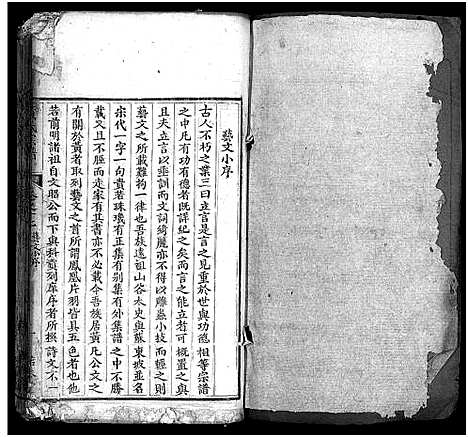 藝文小序
古人不朽之業三曰立言是言之見重於世與功德相等宗譜
之中凡有功有德者既詳紀之矣而言之能立者可概置之與
且夫立言以垂訓而文詞綺麗亦不得以雕蟲小技而輕之則
藝文之所載難拘一律也吾族遠祖山谷太史與蘇東坡並名
宋代一字一句貴若珠璣有正集有別集有外集譜之中不勝
載又且不脛而走家有其書亦不必載今吾族居黃凡公文之
有關於黃者取列藝文之首所謂鳳凰片羽皆具五色者也他
若前明諸祖自文賜公而下與科貢列庠序者所撰詩文不一